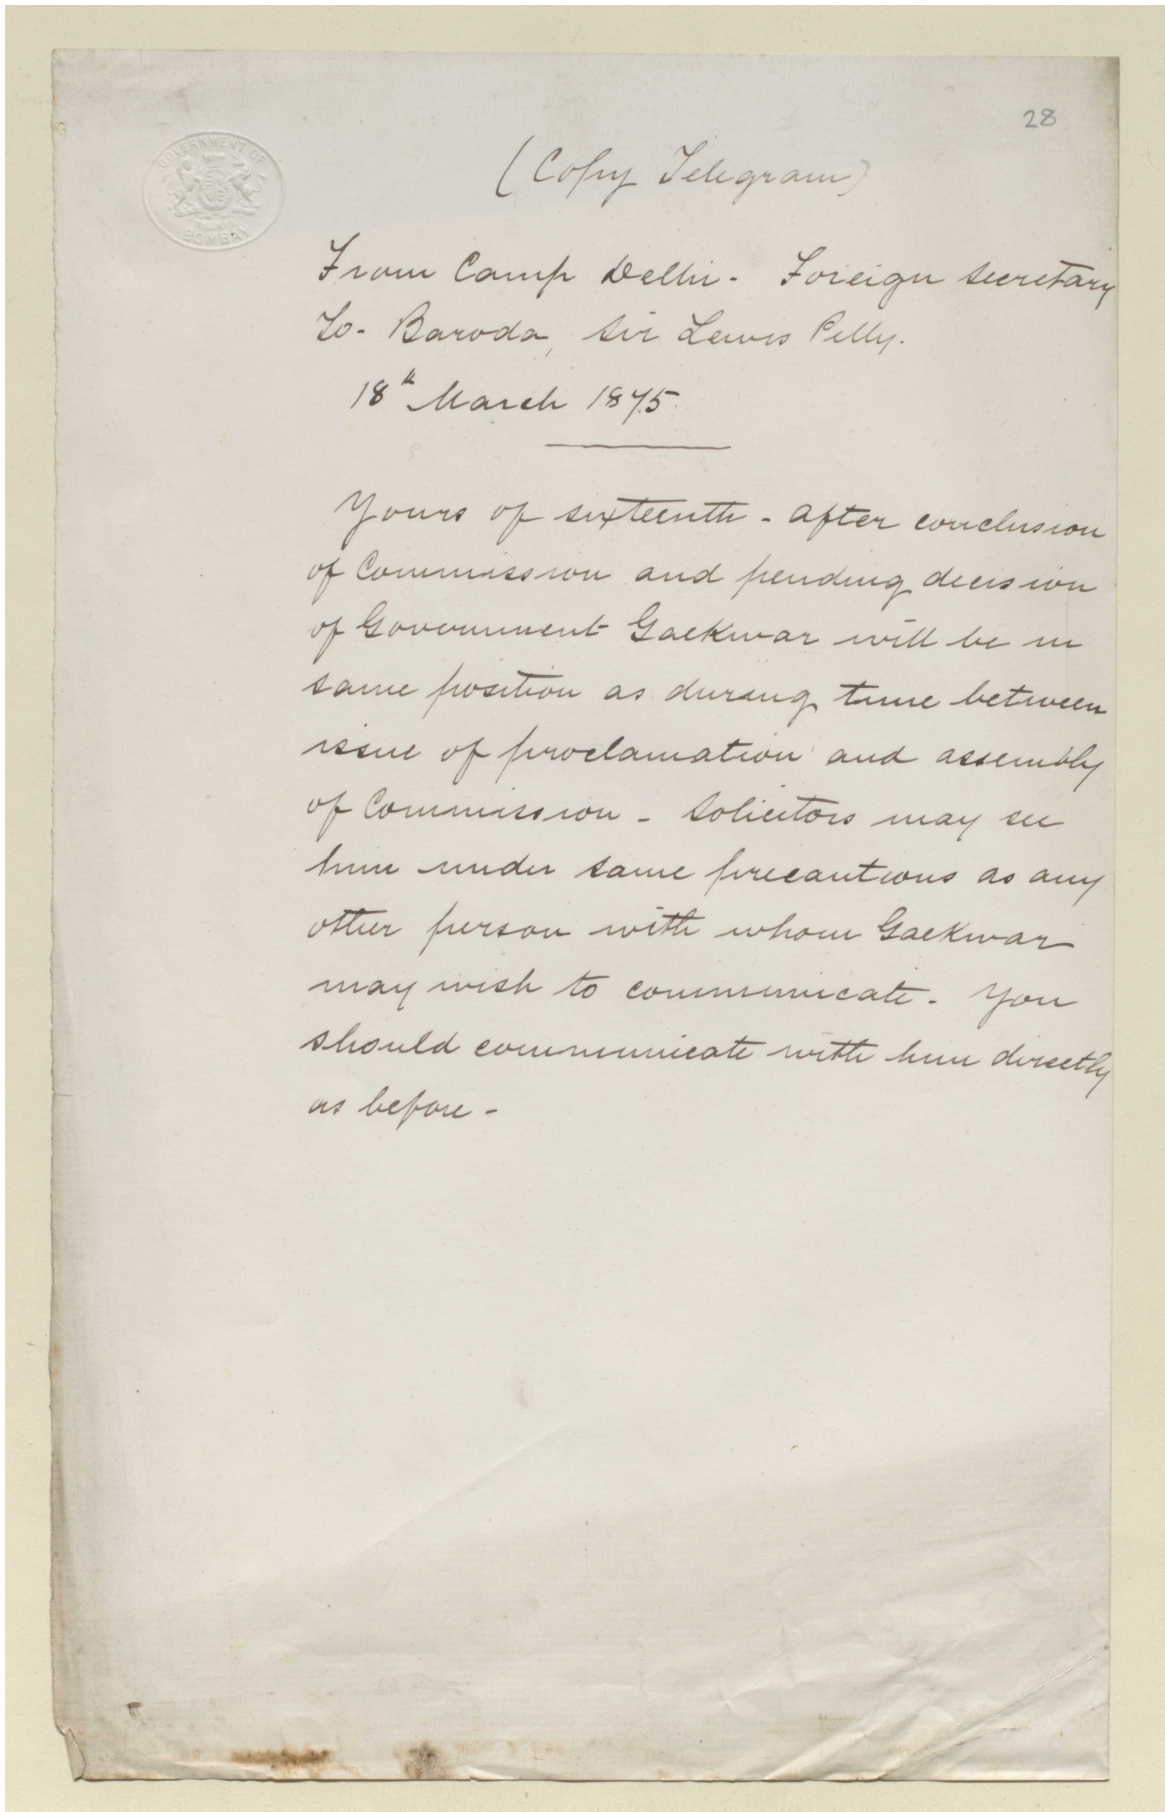 28
GOVERNMENT OF
BOMBAY
(Copy Telegram)
From Camp Delhi - Foreign Secretary
To - Baroda, Sir Lewis Pelly.
18th March 1875.
Yours of sixteenth - after conclusion
of Commission and pending decision
of Government Gaekwar will be in
same position as during time between
issue of proclamation and assembly
of Commission - Solicitors may see
him under same precautions as any
other person with whom Gaekwar
may wish to communicate - You
should communicate with him directly
as before -